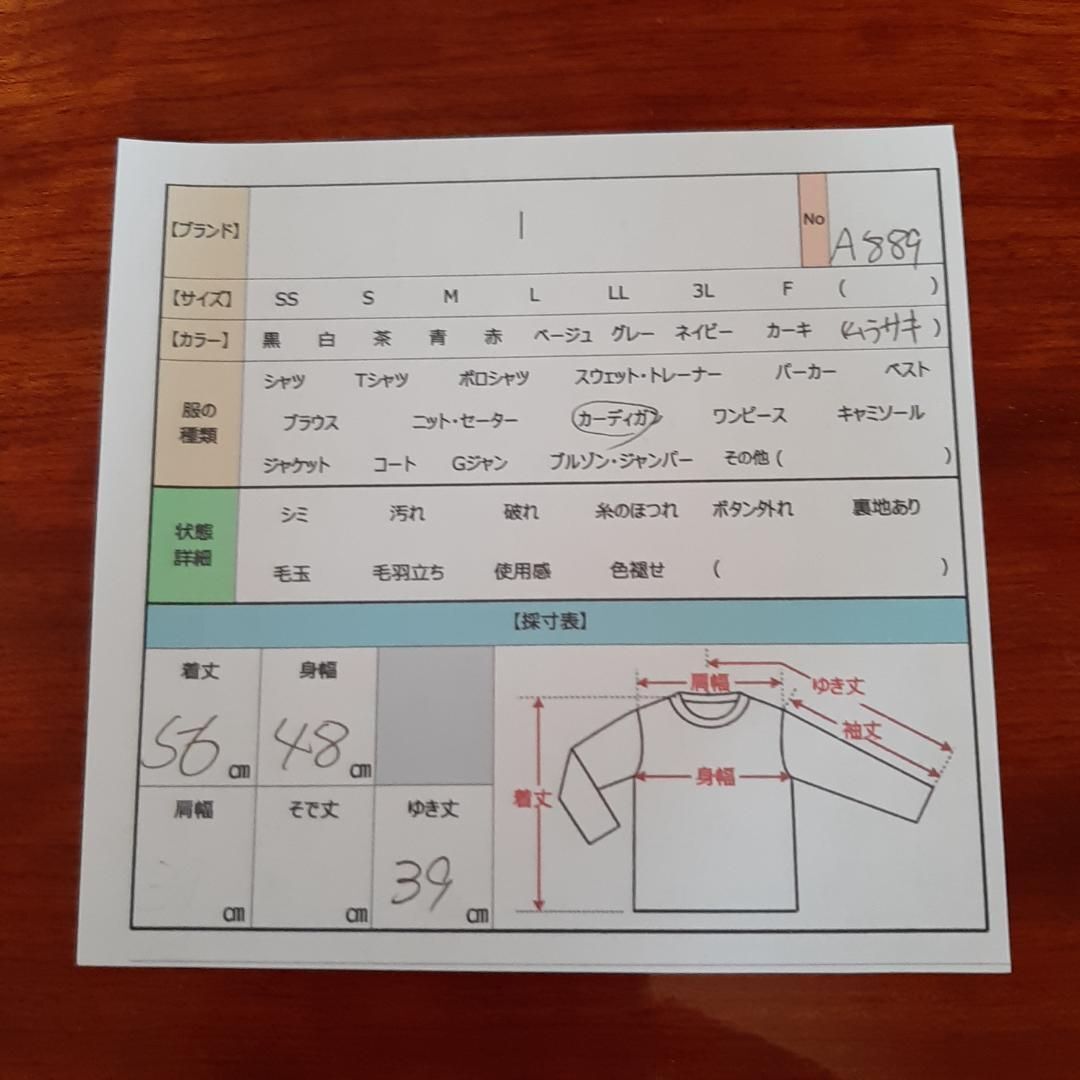 【ブランド】 No A889
【サイズ】 SS S M L LL 3L F ( )
【カラー】 黒 白 茶 青 赤 ベージュ グレー ネイビー カーキ (ムラサキ)
服の種類
シャツ Tシャツ ポロシャツ スウェット・トレーナー パーカー ベスト
ブラウス ニット・セーター カーディガン ワンピース キャミソール
ジャケット コート Gジャン ブルゾン・ジャンパー その他 ( )
状態詳細
シミ 汚れ 破れ 糸のほつれ ボタン外れ 裏地あり
毛玉 毛羽立ち 使用感 色褪せ ( )
【採寸表】
着丈 身幅
56 cm 48 cm
肩幅 そで丈 ゆき丈
cm cm 39 cm
肩幅 ゆき丈
袖丈
身幅
着丈